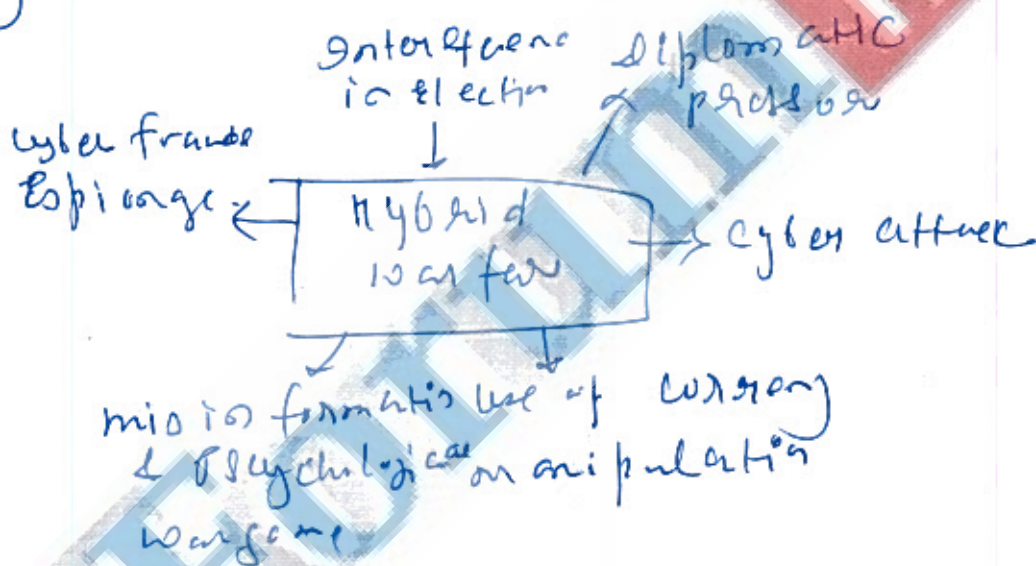 Interference
in Election
Diplomatic
pressor
Cyber frauds
Espionage
Hybrid
warfar
Cyber attack
misinformatin
& Psychological
wargame
Use of currency
manipulation
Forum